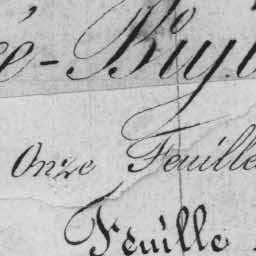 Onze Feuille
Feuille